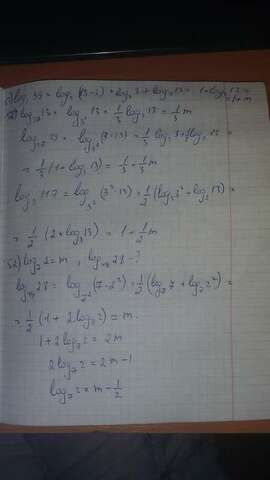 log₃ 39 = log₃ (13·3) = log₃ 3 + log₃ 13 = 1 + log₃ 13 =
= 1+m
13 = log 13 = 1/3 log 13 = 1/3 m
39 = log (3·13) = 1/3 log 3 + log 13 =
= 1/3 (1 + log 13) = 1/3 + 1/3 m
log 117 = log₃² (3²·13) = 1/2 (log₃ 3² + log 13) =
= 1/2 (2 + log 13) = 1 + 1/2 m
52) log₇ 2 = m, log₄₉ 28 - ?
log₄₉ 28 = log₇² (7·2²) = 1/2 (log₇ 7 + log₇ 2²) =
= 1/2 (1 + 2 log₇ 2) = m
1 + 2 log₇ 2 = 2m
2 log₇ 2 = 2m - 1
log₇ 2 = m - 1/2